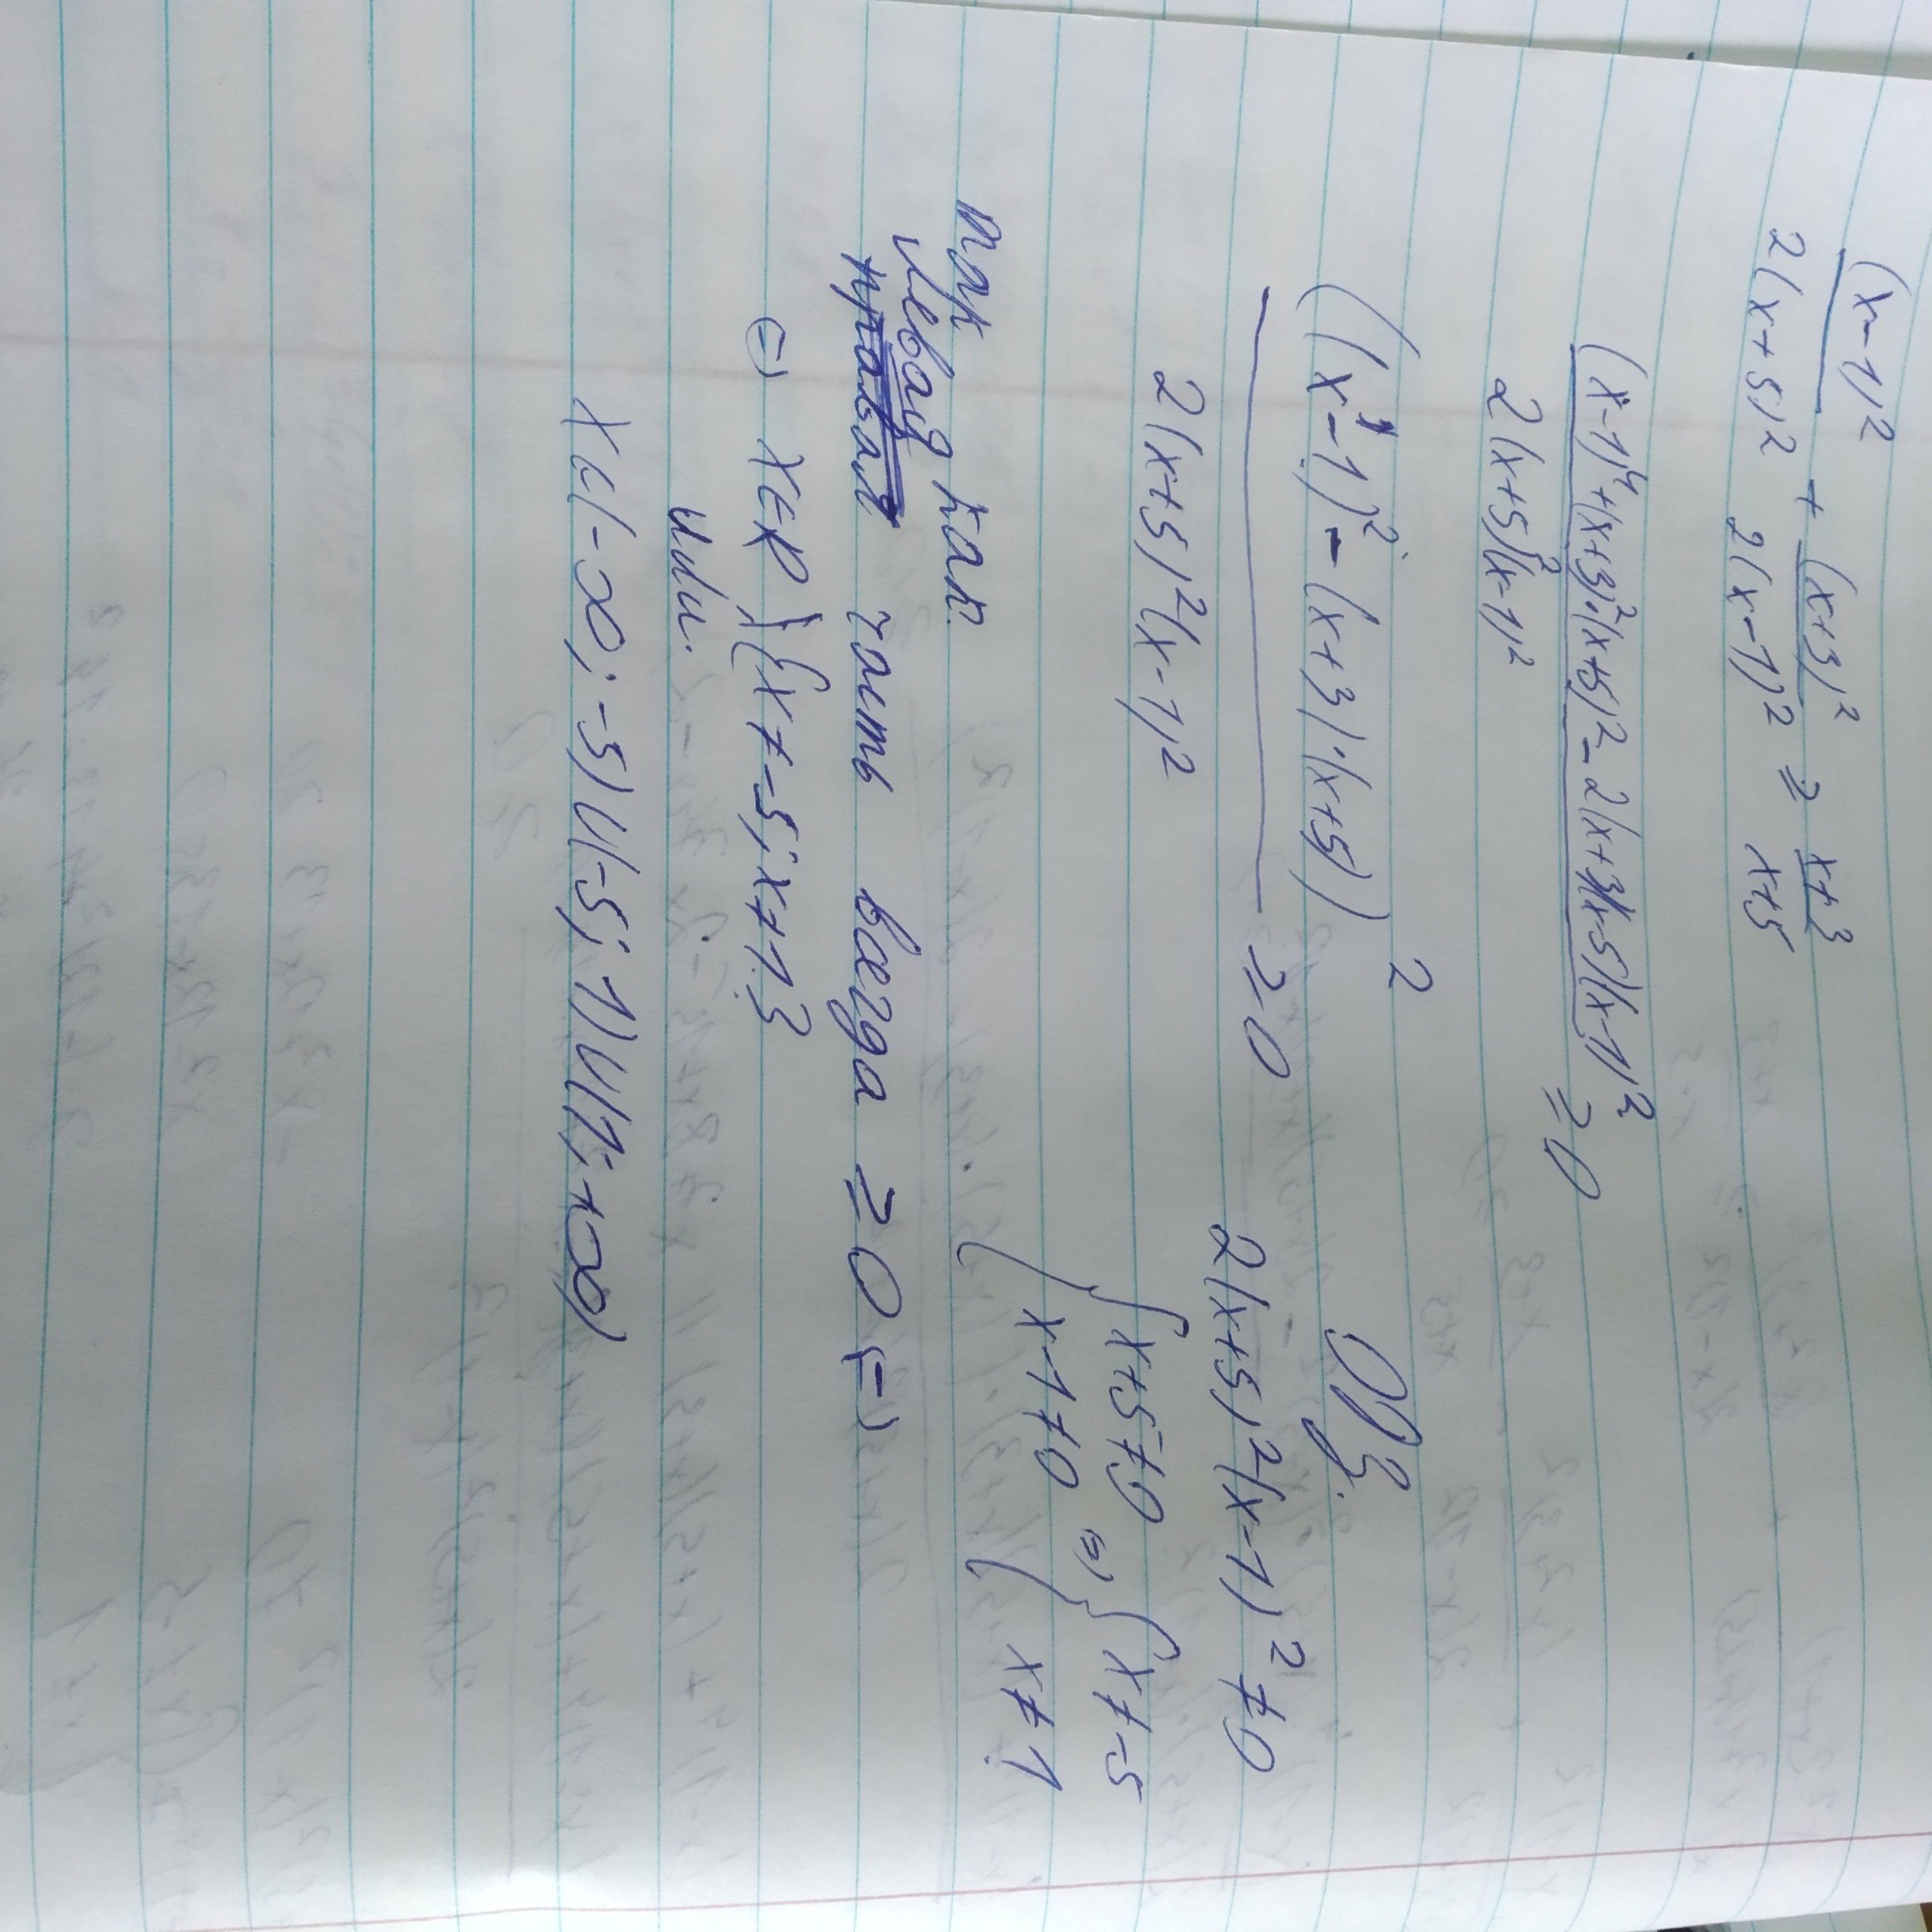 (x-1)²/2(x+5)² + (x+3)²/2(x-1)² ≥ x+3/x+5
(x-1)⁴+(x+3)²·(x+5)²-2(x+3)(x+5)(x-1)²/2(x+5)²(x-1)² ≥ 0
((x-1)²-(x+3)·(x+5))²/2(x+5)²(x-1)² ≥ 0
ОДЗ.
2(x+5)²(x-1)²≠0
{x+5≠0 ⇒ {x≠-5
x-1≠0 x≠1
так как
левая
часть всегда ≥ 0 ⇒
⇒ x∈R\{x≠-5; x≠1}
или.
x∈(-∞;-5)∪(-5;1)∪(1;+∞)